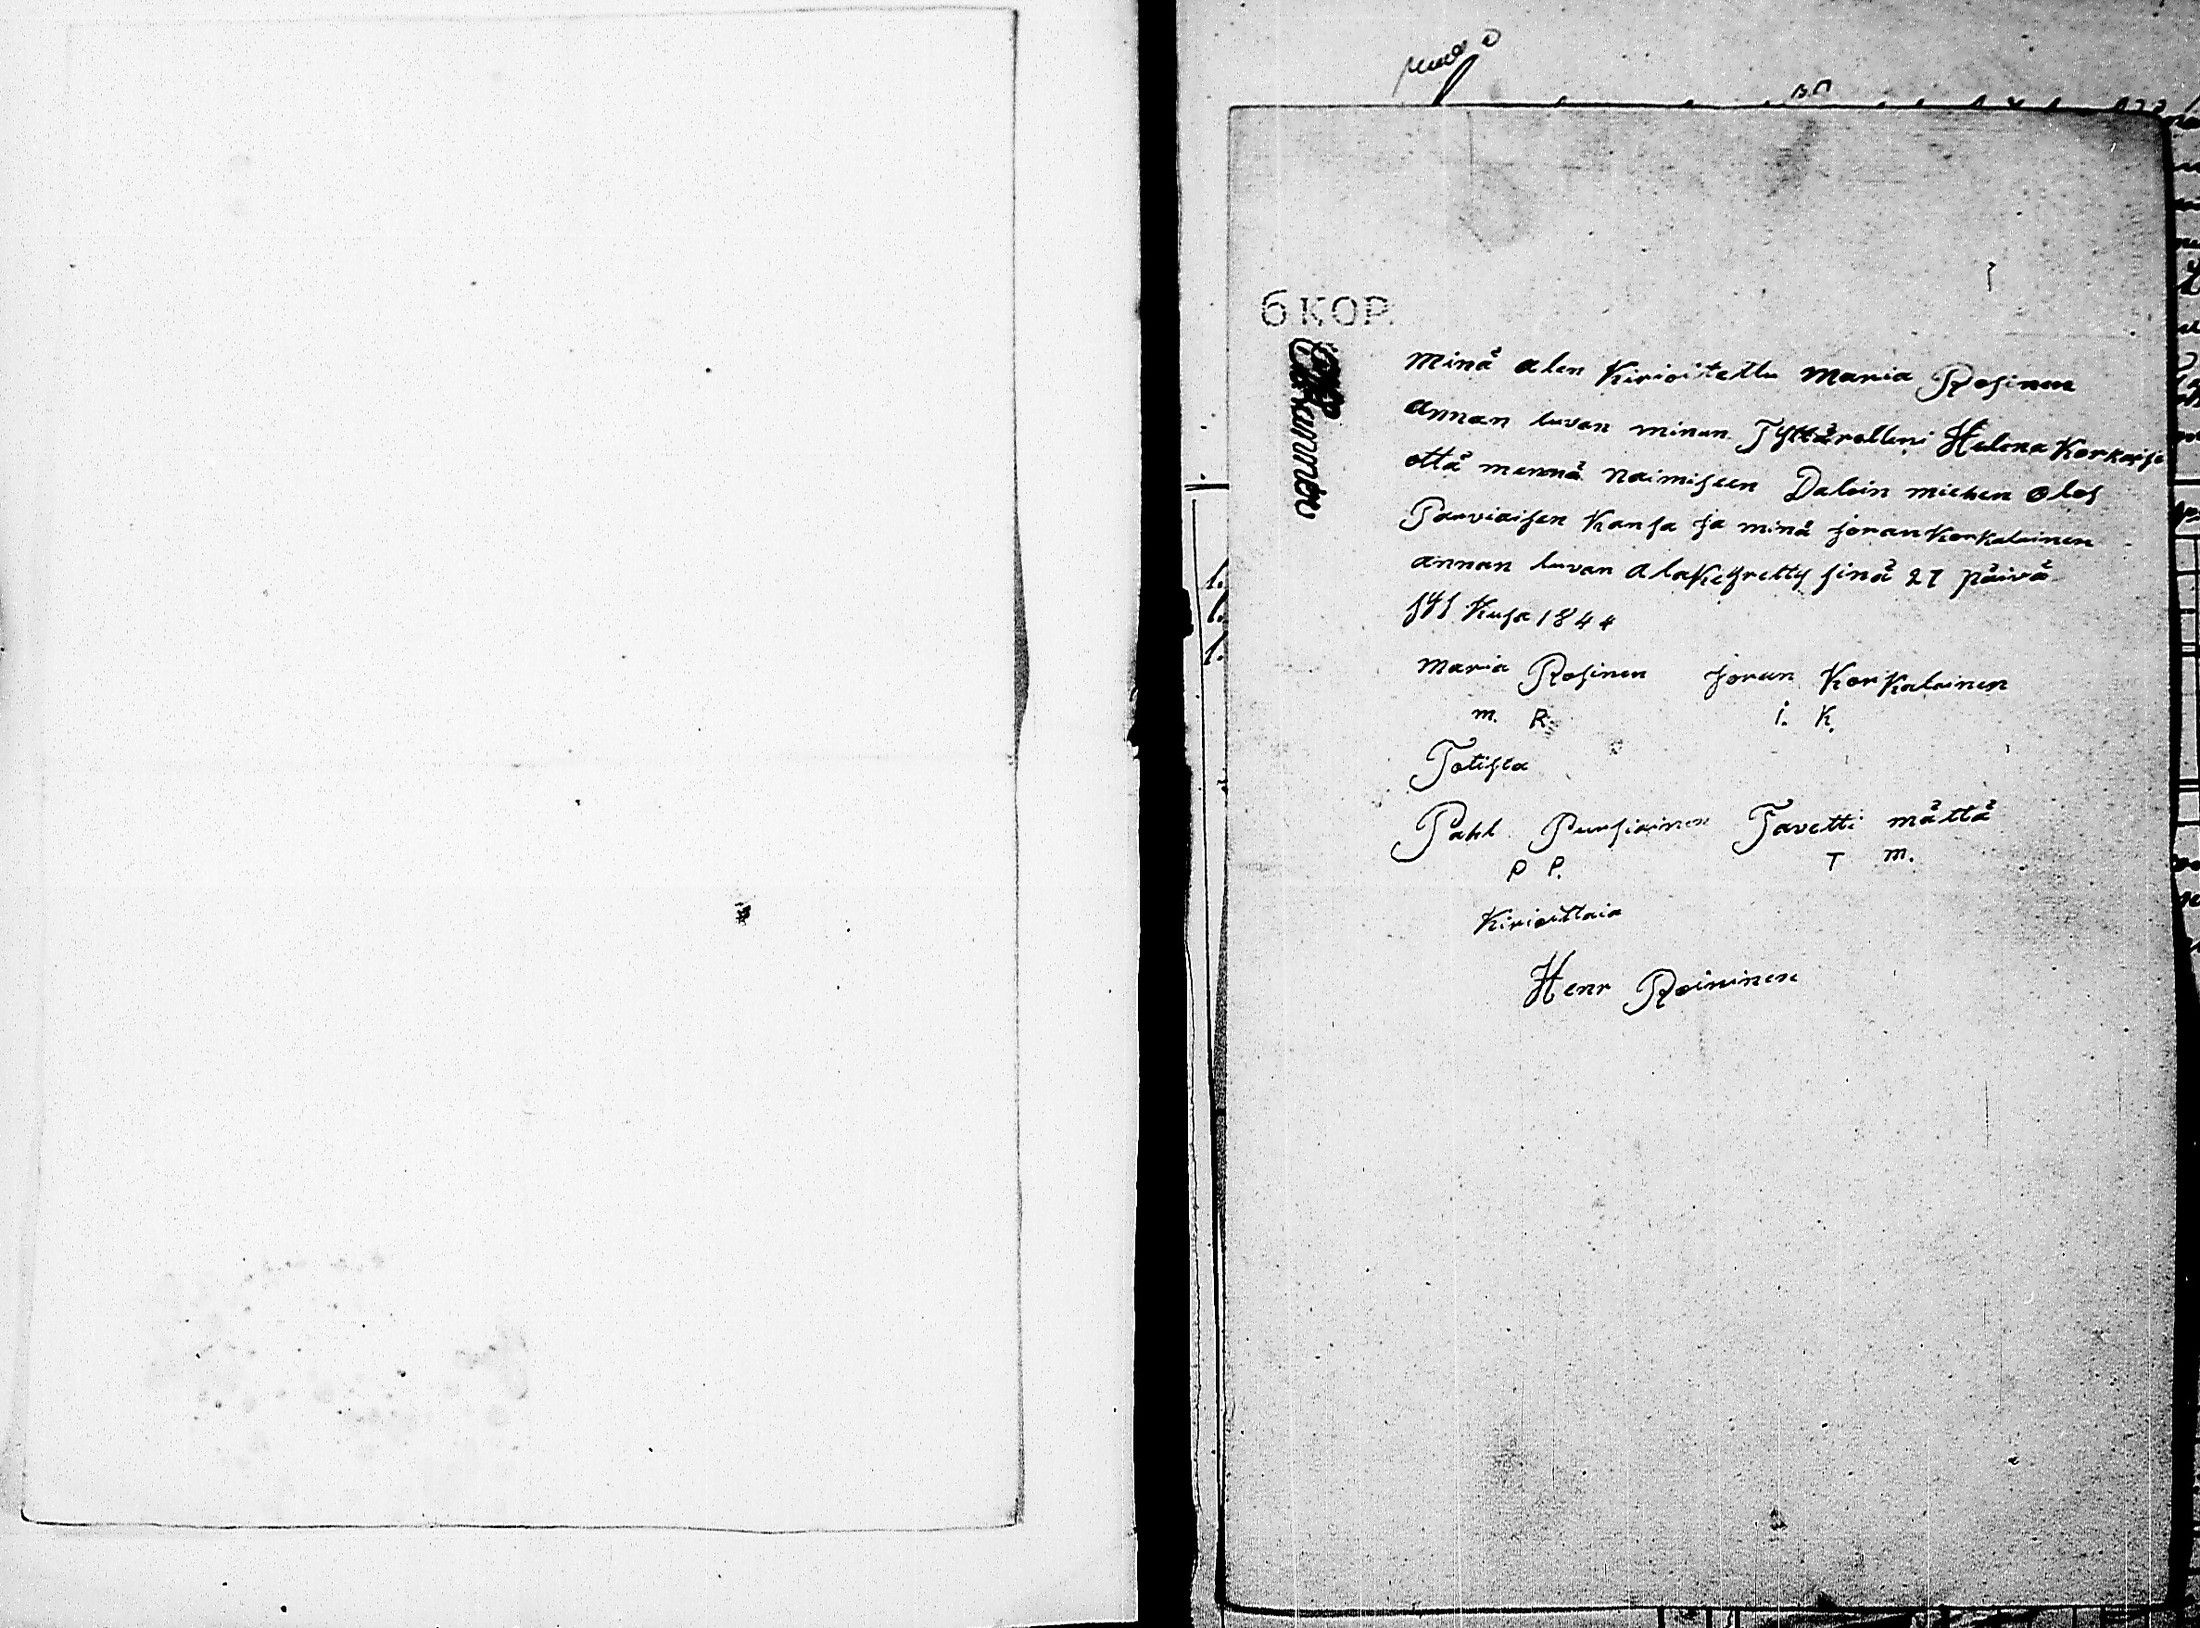 6 KOP.
minä alen Kirioitettu maria Rosinen
annan luvan minun Tyttärelleni Helena Korkaise
että mennä naimiseen Daloin miehen olos
Parviaisen Kansa ja minä joran Korkalainen
annan luvan alaKeyretty sinä 27 päivä
sys Kusa 1844
maria Rosinen joran Korkalainen
m. R. i. K.
Totista
Pahl Pursiainen Tavetti mättä
P P. T m.
Kirioittaia
Henr Roininen